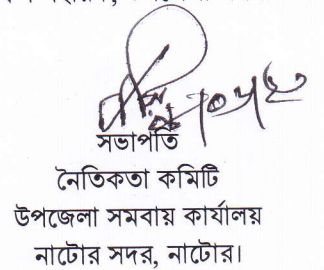 সভাপতি
নৈতিকতা কমিটি
উপজেলা সমবায় কার্যালয়
নাটোর সদর, নাটোর।